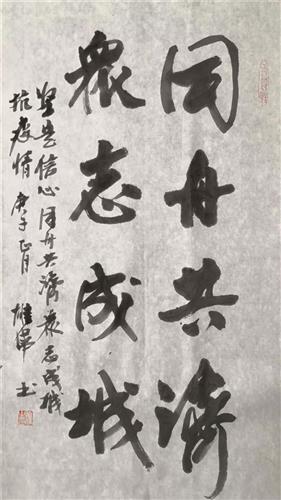 同舟共濟
衆志成城
坚定信心同舟共濟衆志成城
抗疫情 庚子正月 雄 书